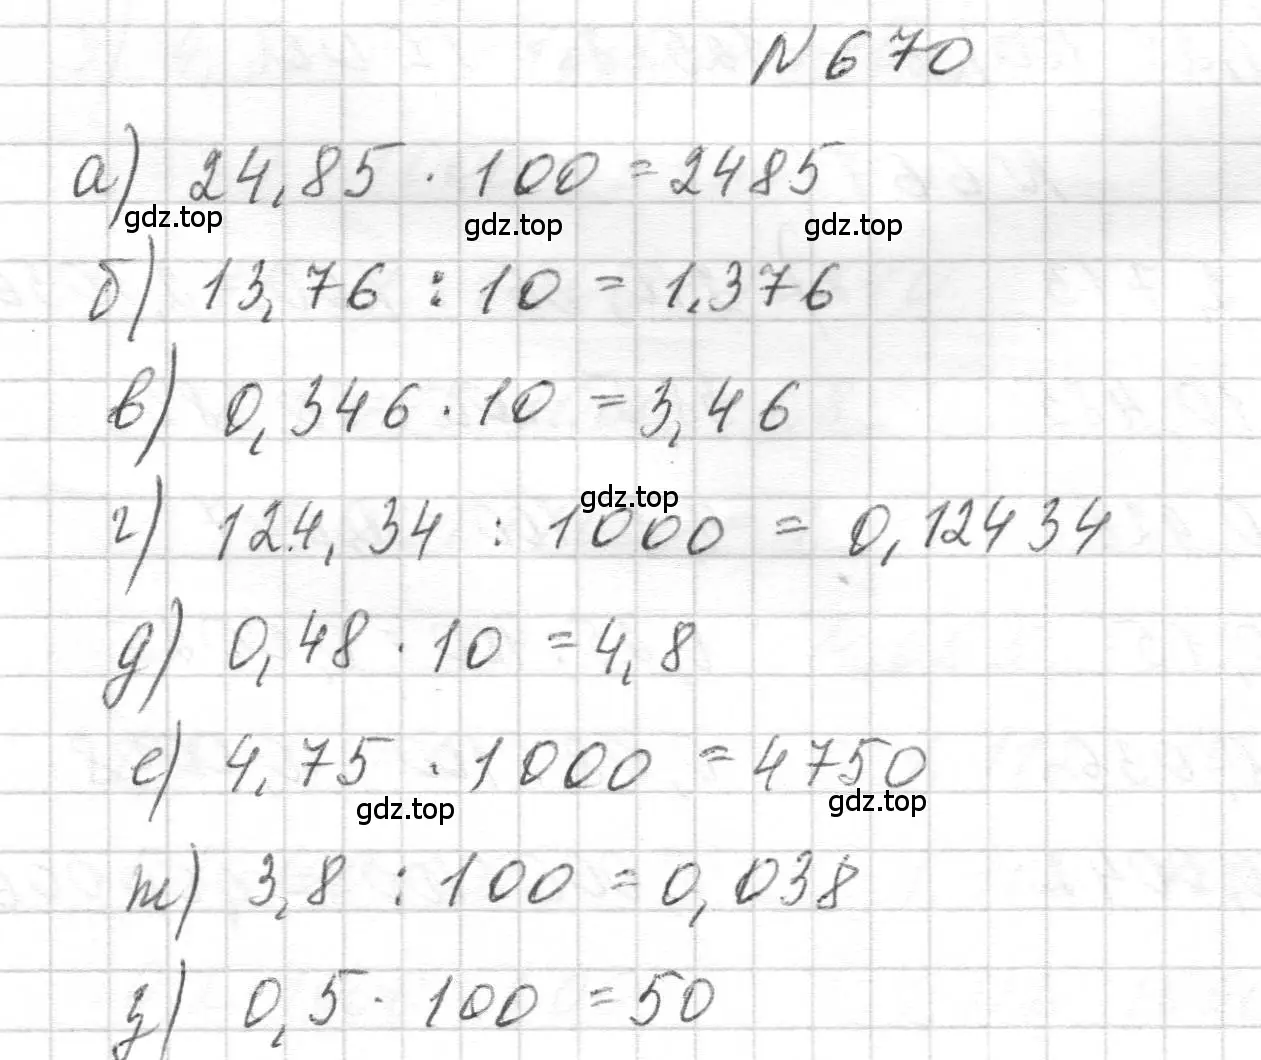 N 670
а) 24,85 · 100 = 2485
gdz.top gdz.top gdz.top
б) 13,76 : 10 = 1,376
в) 0,346 · 10 = 3,46
gdz.top
г) 124,34 : 1000 = 0,12434
д) 0,48 · 10 = 4,8
е) 4,75 · 1000 = 4750
gdz.top gdz.top
ж) 3,8 : 100 = 0,038
з) 0,5 · 100 = 50